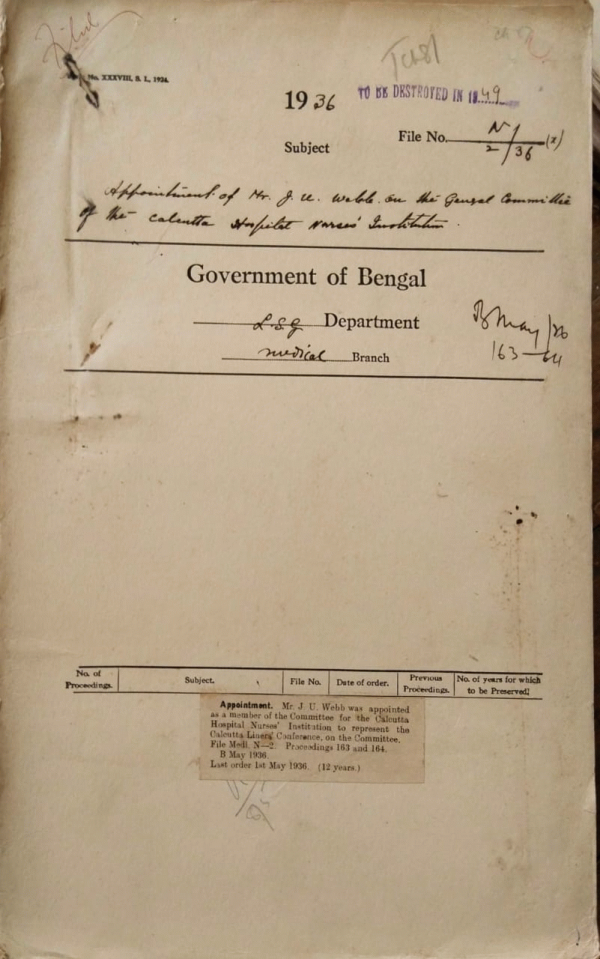 Filed
No. XXXVIII, S. I., 1936.
1936 TO BE DESTROYED IN 1949
File No. N1/2/36 (2)
Subject
Appointment of Mr. J. U. Webb on the General Committee
of the Calcutta Hospital Nurses' Institution.
Government of Bengal
L.S.G. Department
Medical Branch
B May/36
163-64
No. of Proceedings. Subject. File No. Date of order. Previous Proceedings. No. of years for which to be Preserved.
Appointment. Mr. J. U. Webb was appointed
as a member of the Committee for the Calcutta
Hospital Nurses' Institution to represent the
Calcutta Liners' Conference, on the Committee.
File Medl. N—2. Proceedings 163 and 164.
B May 1936.
Last order 1st May 1936. (12 years.)